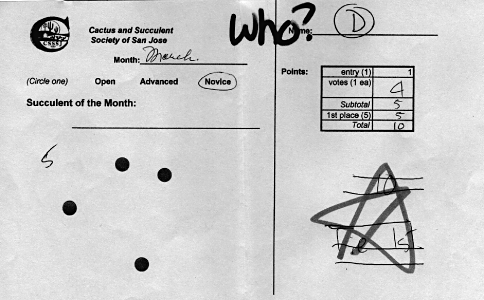 CSSSJ
Cactus and Succulent
Society of San Jose
Month: March
(Circle one) Open Advanced Novice
Succulent of the Month:
5
WHO?
Name: D
Points:
entry (1) 1
votes (1 ea) 4
Subtotal 5
1st place (5) 5
Total 10
10